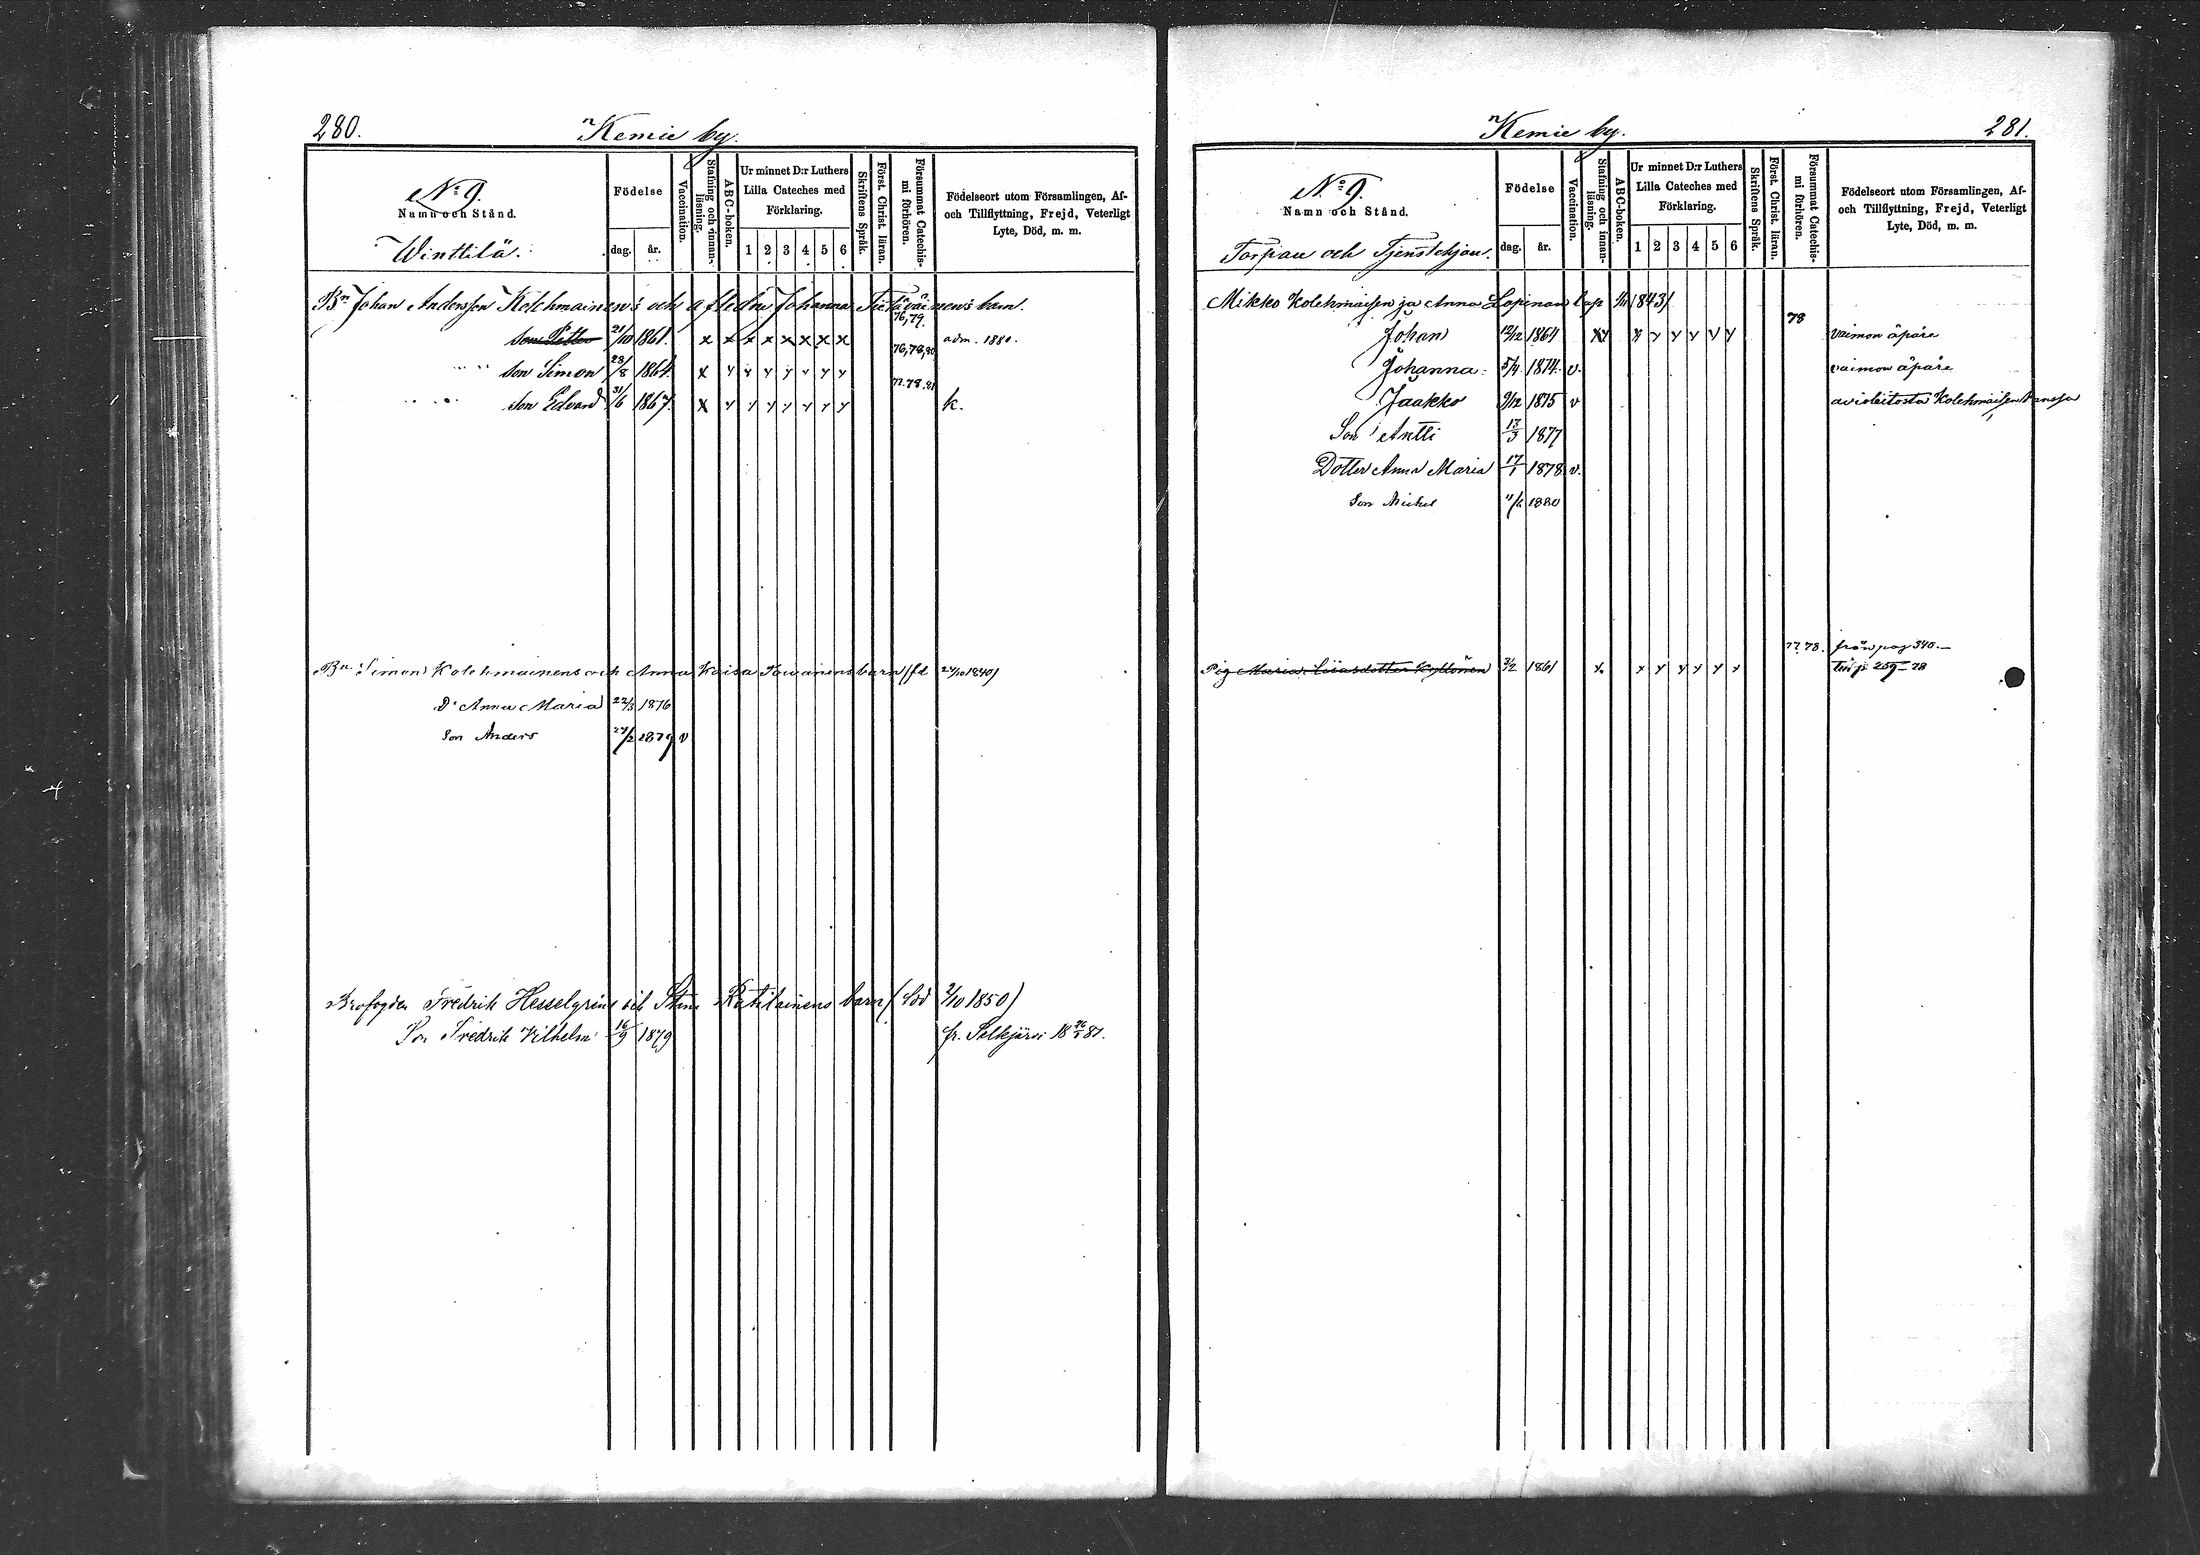 280.
Kemie by.
No 9.
Namn och Stånd.
Winttilä.
Födelse
dag. år.
Vaccination.
Stafning och innanläsning.
ABC-boken.
Ur minnet D:r Luthers
Lilla Cateches med
Förklaring.
1 2 3 4 5 6
Skriftens Språk.
Först. Christ. läran.
Försummat Catechismi förhören.
Födelseort utom Församlingen, Af-
och Tillflyttning, Frejd, Veterligt
Lyte, Död, m. m.
Bn Johan Andersson Kolehmainens och aflidne Johanna barn.
76, 79.
Son Petter 21/10 1861. x x x x x x x x adm. 1880.
76, 78, 80
Son Simon 28/8 1864. x y y y y y y y
77. 78. 81
Son Edvard 31/6 1867. x y y y y y y y k.
Bn Simon Kolehmainens och Anna Kaisa barn (fd 24/10 1840)
D. Anna Maria 22/3 1876
Son Anders 27/2 1879 v
Brofogden Fredrik Hesselgrens och Stina Ratilainens barn (född 2/10 1850)
Son Fredrik Vilhelm 16/9 1879 fr. Selkjärvi 18 81.
Kemie by.
281.
No 9.
Namn och Stånd.
Torpare och Tjenstehjon.
Födelse
dag. år.
Vaccination.
Stafning och innanläsning.
ABC-boken.
Ur minnet D:r Luthers
Lilla Cateches med
Förklaring.
1 2 3 4 5 6
Skriftens Språk.
Först. Christ. läran.
Försummat Catechismi förhören.
Födelseort utom Församlingen, Af-
och Tillflyttning, Frejd, Veterligt
Lyte, Död, m. m.
Mikko Kolehmaisen ja Anna Lopinan lap 1843)
78
Johan 12/12 1864 xy y y y y y y vaimon äpäre
Johanna 5/4 1874. v. vaimon äpäre
Jaakko 9/12 1875 v avioliitosta Kolehmaisen kanssa
Son Antti 13/3 1877
Dotter Anna Maria 17/1 1878 v.
Son Michel 11/6 1880
77. 78. från pag 340.
Pig Maria Kyllönen 3/2 1861 x y y y y y y till p 259 - 78